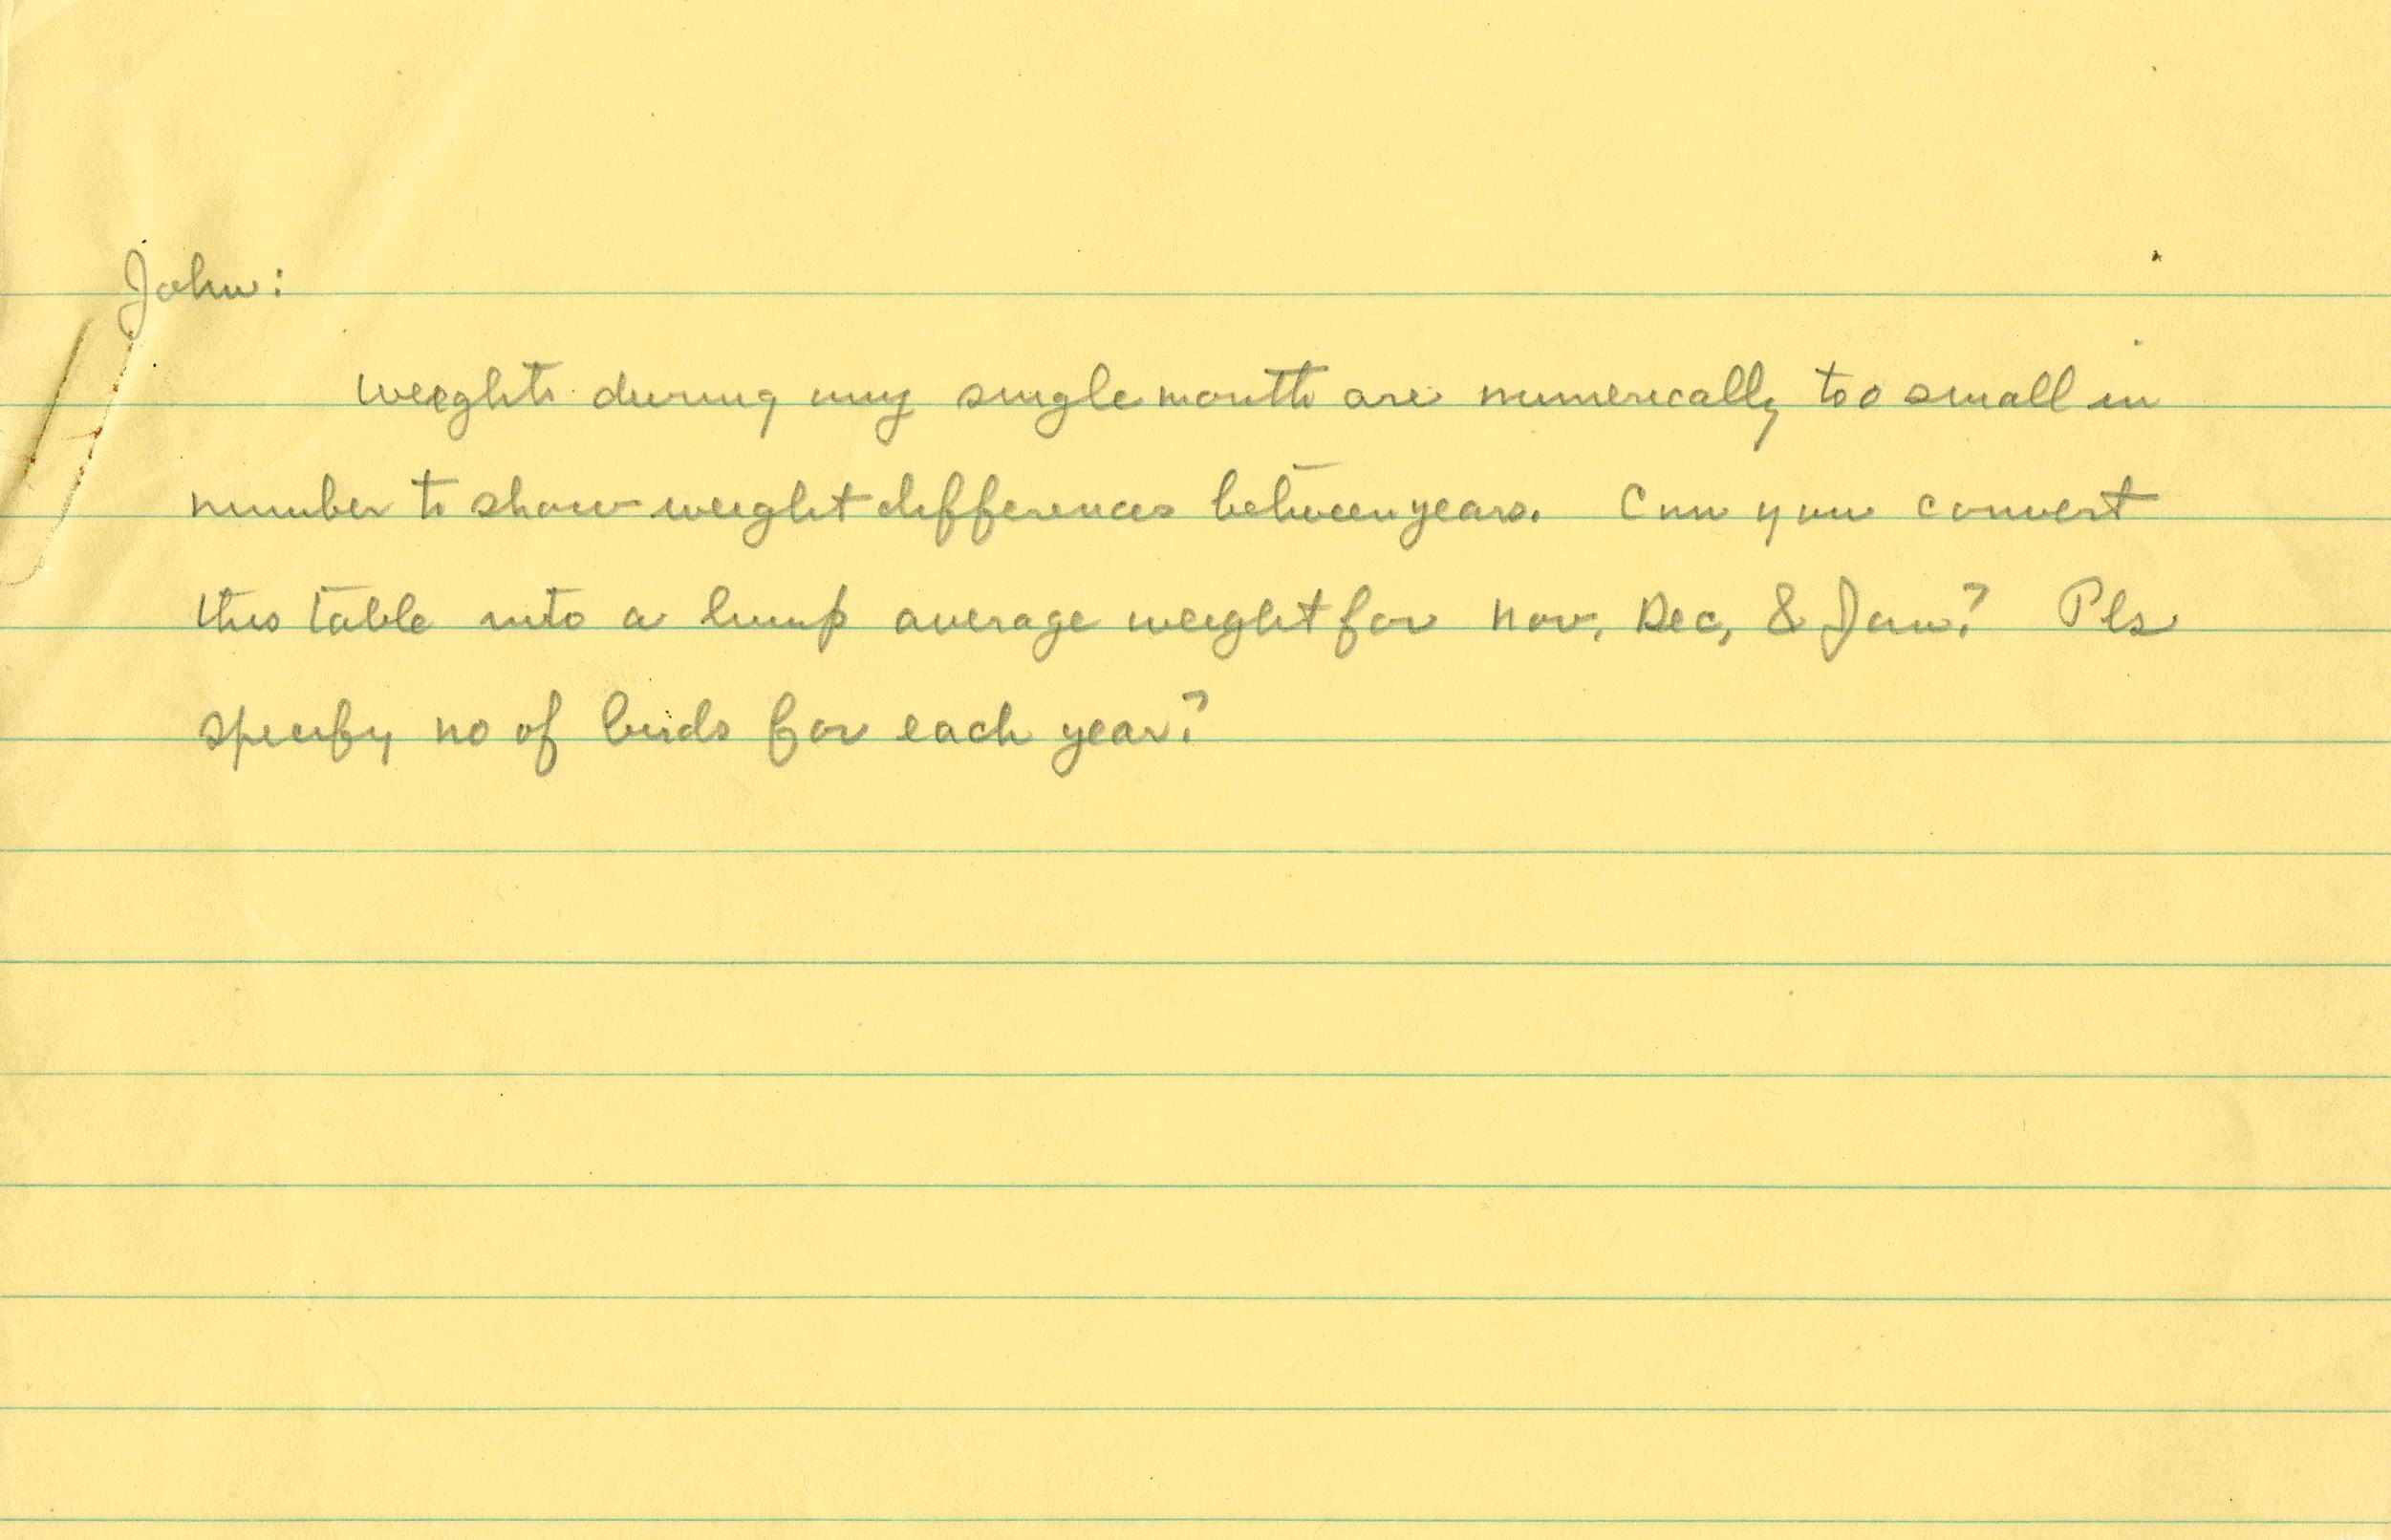 John:
Weights during any single month are numerically too small in
number to show weight differences between years. Can you convert
this table into a lump average weight for Nov, Dec, & Jan? Pls
specify no of birds for each year?